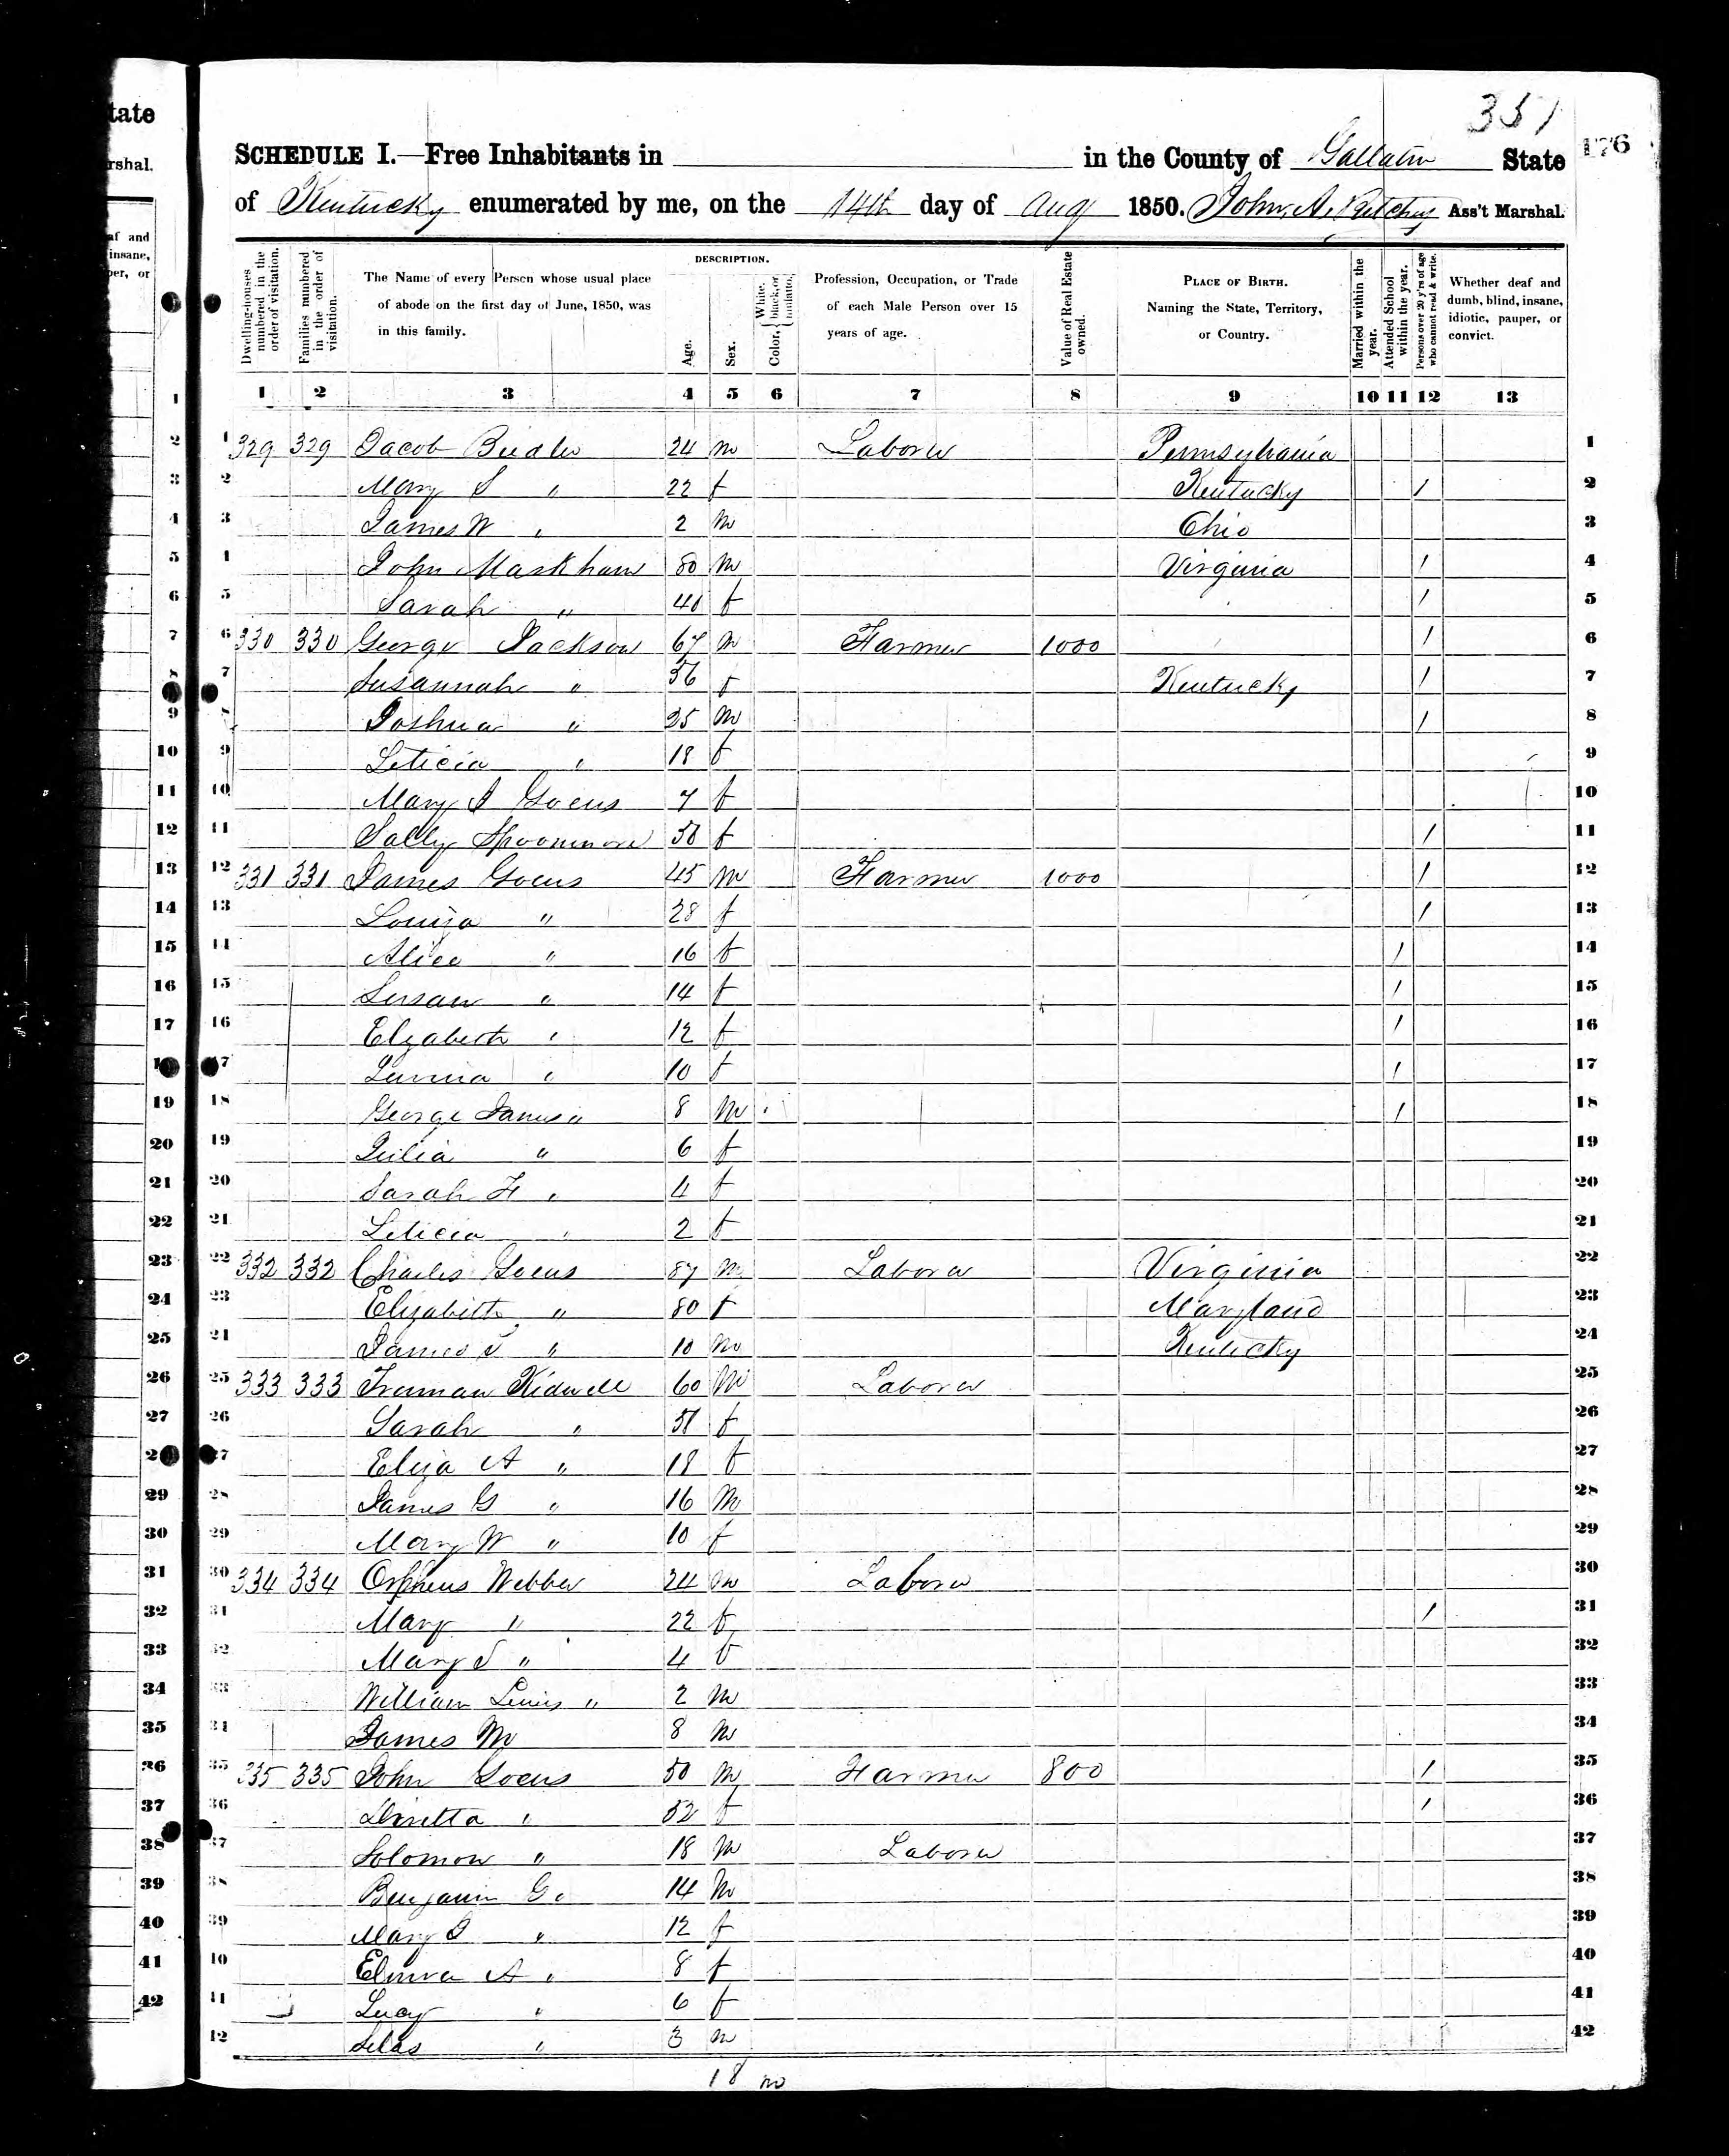 tate
rshal.
af and
insane,
per, or
351
176
SCHEDULE I.—Free Inhabitants in in the County of Gallatin State
of Kentucky enumerated by me, on the 14th day of Aug 1850. John A. Ass't Marshal.
Dwelling-houses numbered in the order of visitation.
Families numbered in the order of visitation.
The Name of every Person whose usual place of abode on the first day of June, 1850, was in this family.
DESCRIPTION.
Age.
Sex.
Color, White, black, or mulatto.
Profession, Occupation, or Trade of each Male Person over 15 years of age.
Value of Real Estate owned.
PLACE OF BIRTH. Naming the State, Territory, or Country.
Married within the year.
Attended School within the year.
Persons over 20 y'rs of age who cannot read & write.
Whether deaf and dumb, blind, insane, idiotic, pauper, or convict.
1 2 3 4 5 6 7 8 9 10 11 12 13
1 329 329 Jacob 24 m Laborer Pennsylvania 1
2 Mary S " 22 f Kentucky / 2
3 James W " 2 m Ohio 3
4 John Markham 80 m Virginia / 4
5 Sarah " 40 f / 5
6 330 330 George Jackson 67 m Farmer 1000 / 6
7 Susannah " 56 f Kentucky / 7
8 Joshua " 25 m / 8
9 Leticia " 18 f 9
10 Mary J Gocus 7 f 10
11 Sally Spoonmore 50 f / 11
12 331 331 James Gocus 45 m Farmer 1000 / 12
13 Louiza " 28 f / 13
14 Alice " 16 f / 14
15 Susan " 14 f / 15
16 Elizabeth " 12 f / 16
17 " 10 f / 17
18 George James " 8 m / 18
19 Julia " 6 f 19
20 Sarah F " 4 f 20
21 Leticia " 2 f 21
22 332 332 Charles Gocus 87 m Laborer Virginia 22
23 Elizabeth " 80 f Maryland 23
24 James " 10 m Kentucky 24
25 333 333 Truman Kidwell 60 m Laborer 25
26 Sarah " f 26
27 Eliza A " 18 f 27
28 James G " 16 m 28
29 Mary W " 10 f 29
30 334 334 Orpheus Webber 24 m Laborer 30
31 Mary " 22 f / 31
32 Mary " 4 f 32
33 William Lewis " 2 m 33
34 James M 8 m 34
35 335 335 John Gocus 50 m Farmer 800 / 35
36 " 52 f / 36
37 Solomon " 18 m Laborer 37
38 Benjamin G " 14 m 38
39 Mary J " 12 f 39
40 A " 8 f 40
41 Lucy " 6 f 41
42 Silas " 3 m 42
18 m